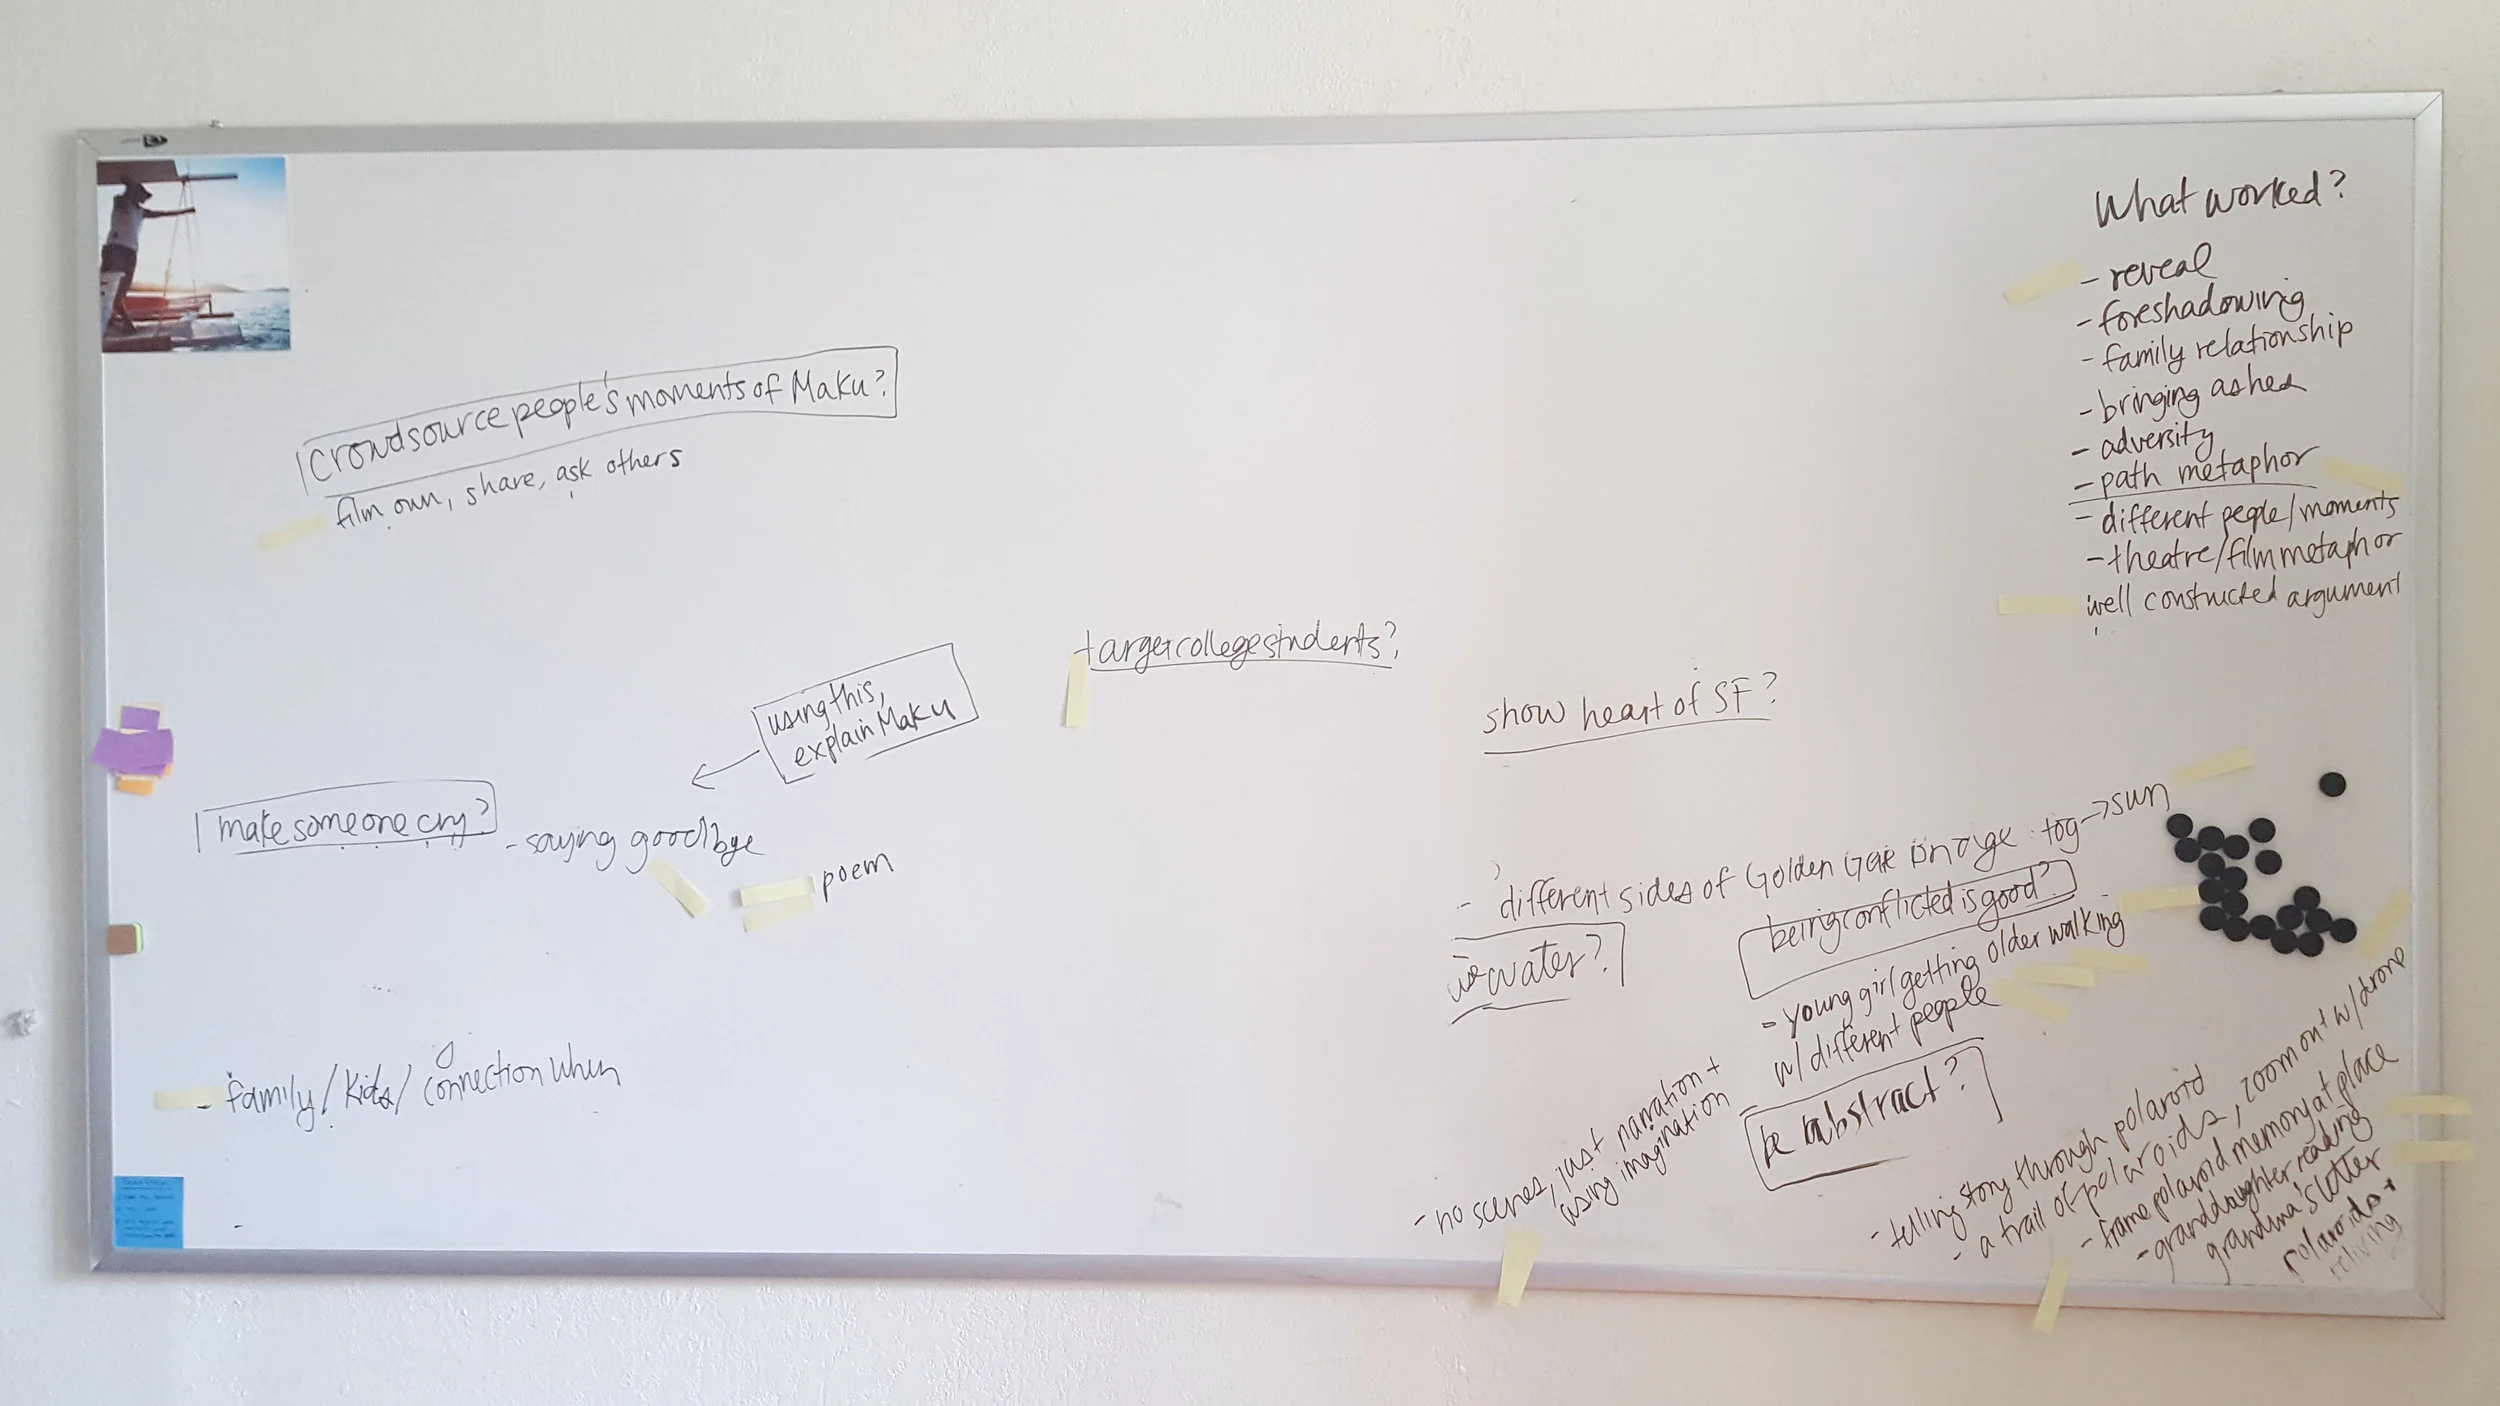 What worked?
- reveal
- foreshadowing
- family relationship
- bringing ashes
- adversity
- path metaphor
- different people/moments
- theatre/film metaphor
well constructed argument
crowdsource people's moments of Maku?
film own, share, ask others
target college students?
using this,
explain Maku
show heart of SF?
make someone cry?
- saying goodbye
poem
- different sides of Golden Gate Bridge : fog → sun
being conflicted is good?
use water?
- young girl getting older walking
w/ different people
be abstract?
- family / kids / connection when
- no scenes, just narration +
using imagination
- telling story through polaroid
- a trail of polaroids, zoom out w/ drone
- frame polaroid memory at place
- granddaughter reading
grandma's letter
polaroids +
reliving